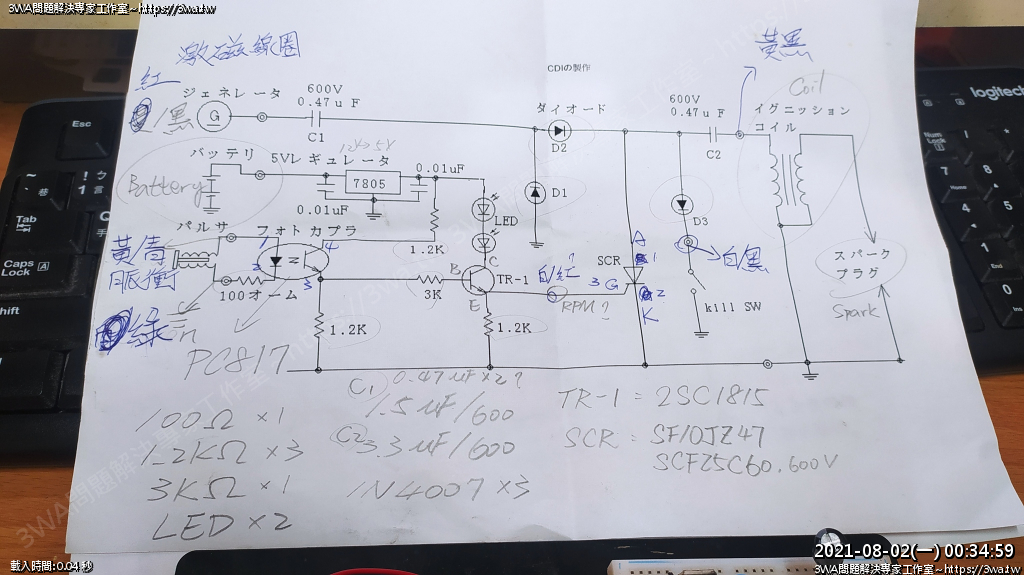 3WA問題解決專家工作室~https://3wa.tw
激磁線圈
黃黑
CDIの製作
紅
ジェネレータ
600V
0.47uF
C1
/黑
G
ダイオード
D2
600V
0.47uF
C2
Coil
イグニッション
コイル
バッテリ
Battery
5Vレギュレータ
12V→5V
7805
0.01uF
0.01uF
LED
D1
D3
パルサ
フォトカプラ
黃青
脈衝
綠
1
2
3
4
100オーム
1.2K
3K
1.2K
B
C
E
TR-1
1.2K
白/紅?
RPM?
SCR
A
1
3 G
2
K
白黑
kill SW
スパーク
プラグ
Spark
PC817
C1 0.47uF×2?
1.5uF/600
C2 3.3uF/600
1N4007×3
100Ω×1
1.2KΩ×3
3KΩ×1
LED×2
TR-1=2SC1815
SCR: SF10JZ47
SCF25C60.600V
logitech
Esc
Tab
Caps
Lock
A
hift
Num
Lock
7
Home
4
1
End
0
Ins
載入時間:0.04 秒
2021-08-02(一) 00:34:59
3WA問題解決專家工作室~https://3wa.tw